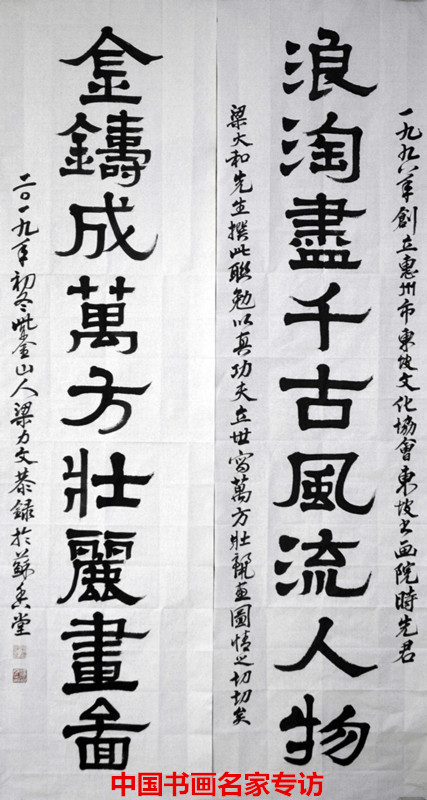 一九九八年創立惠州市東坡文化協會東坡书画院時先君
浪淘盡千古風流人物
梁大和先生撰此聯勉以真功夫立世寫萬方壮麗画圖情之切切矣
金鑄成萬方壯麗畫啚
二〇一九年初冬紫金山人梁力文恭録於蘇香堂
中国书画名家专访